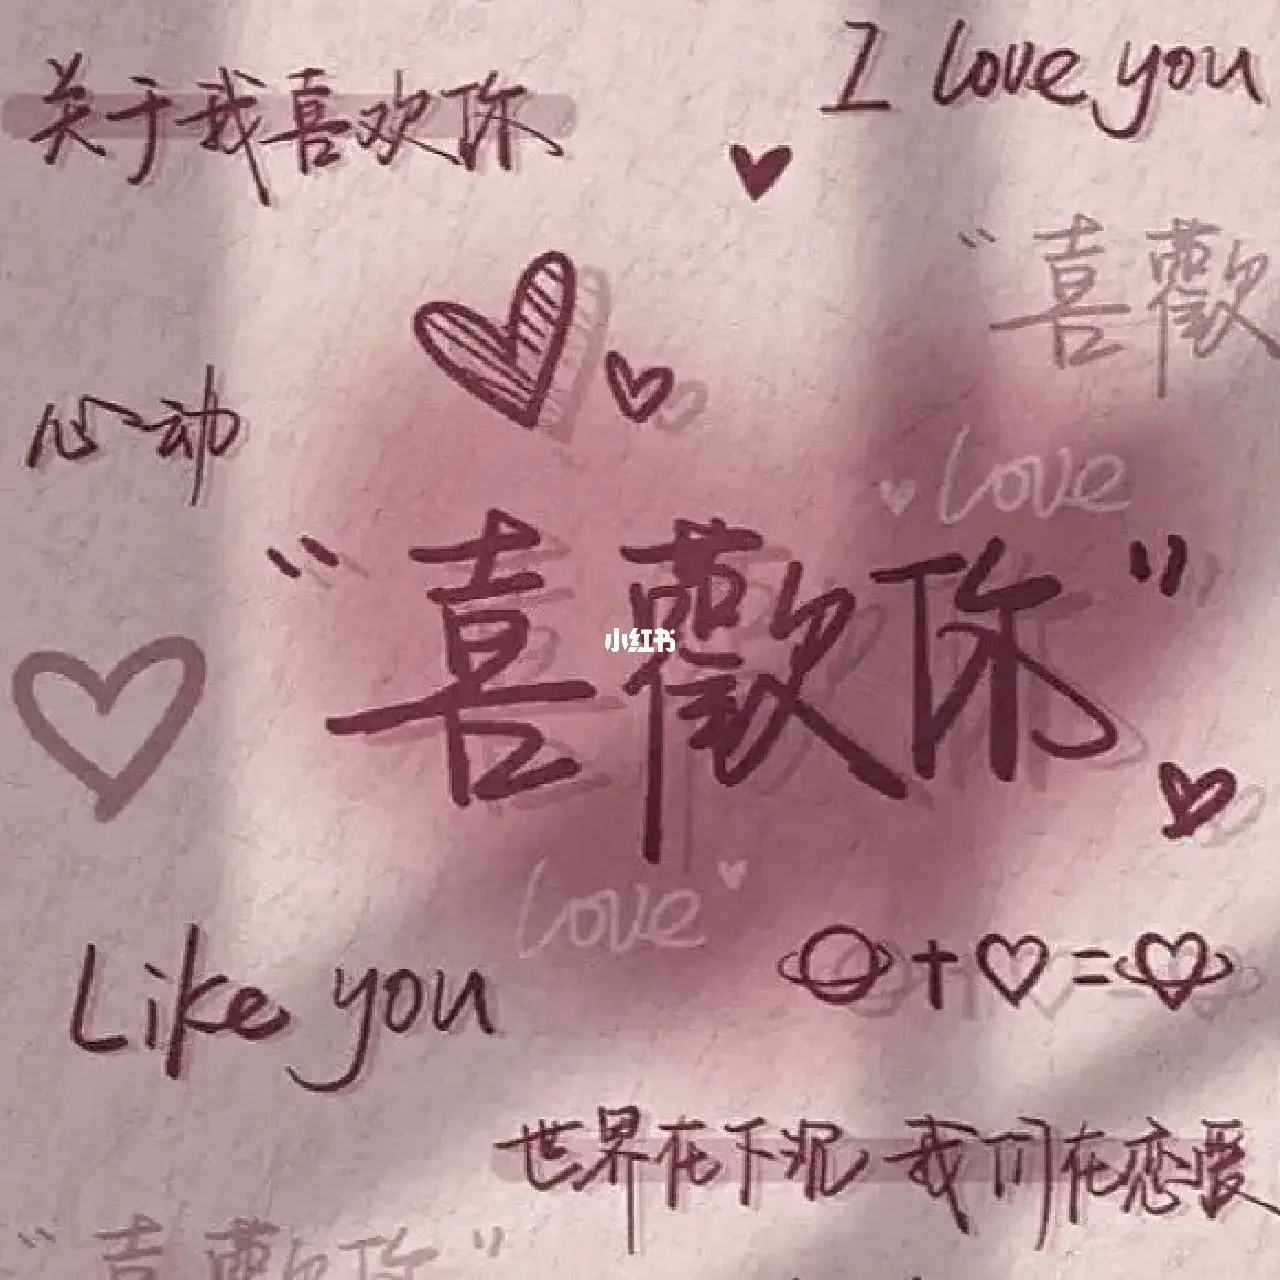 I love you
关于我喜欢你
"喜歡
心动
love
"喜歡你"
小红书
love
Like you
+ =
世界在下沉 我们在恋爱
"喜歡你"